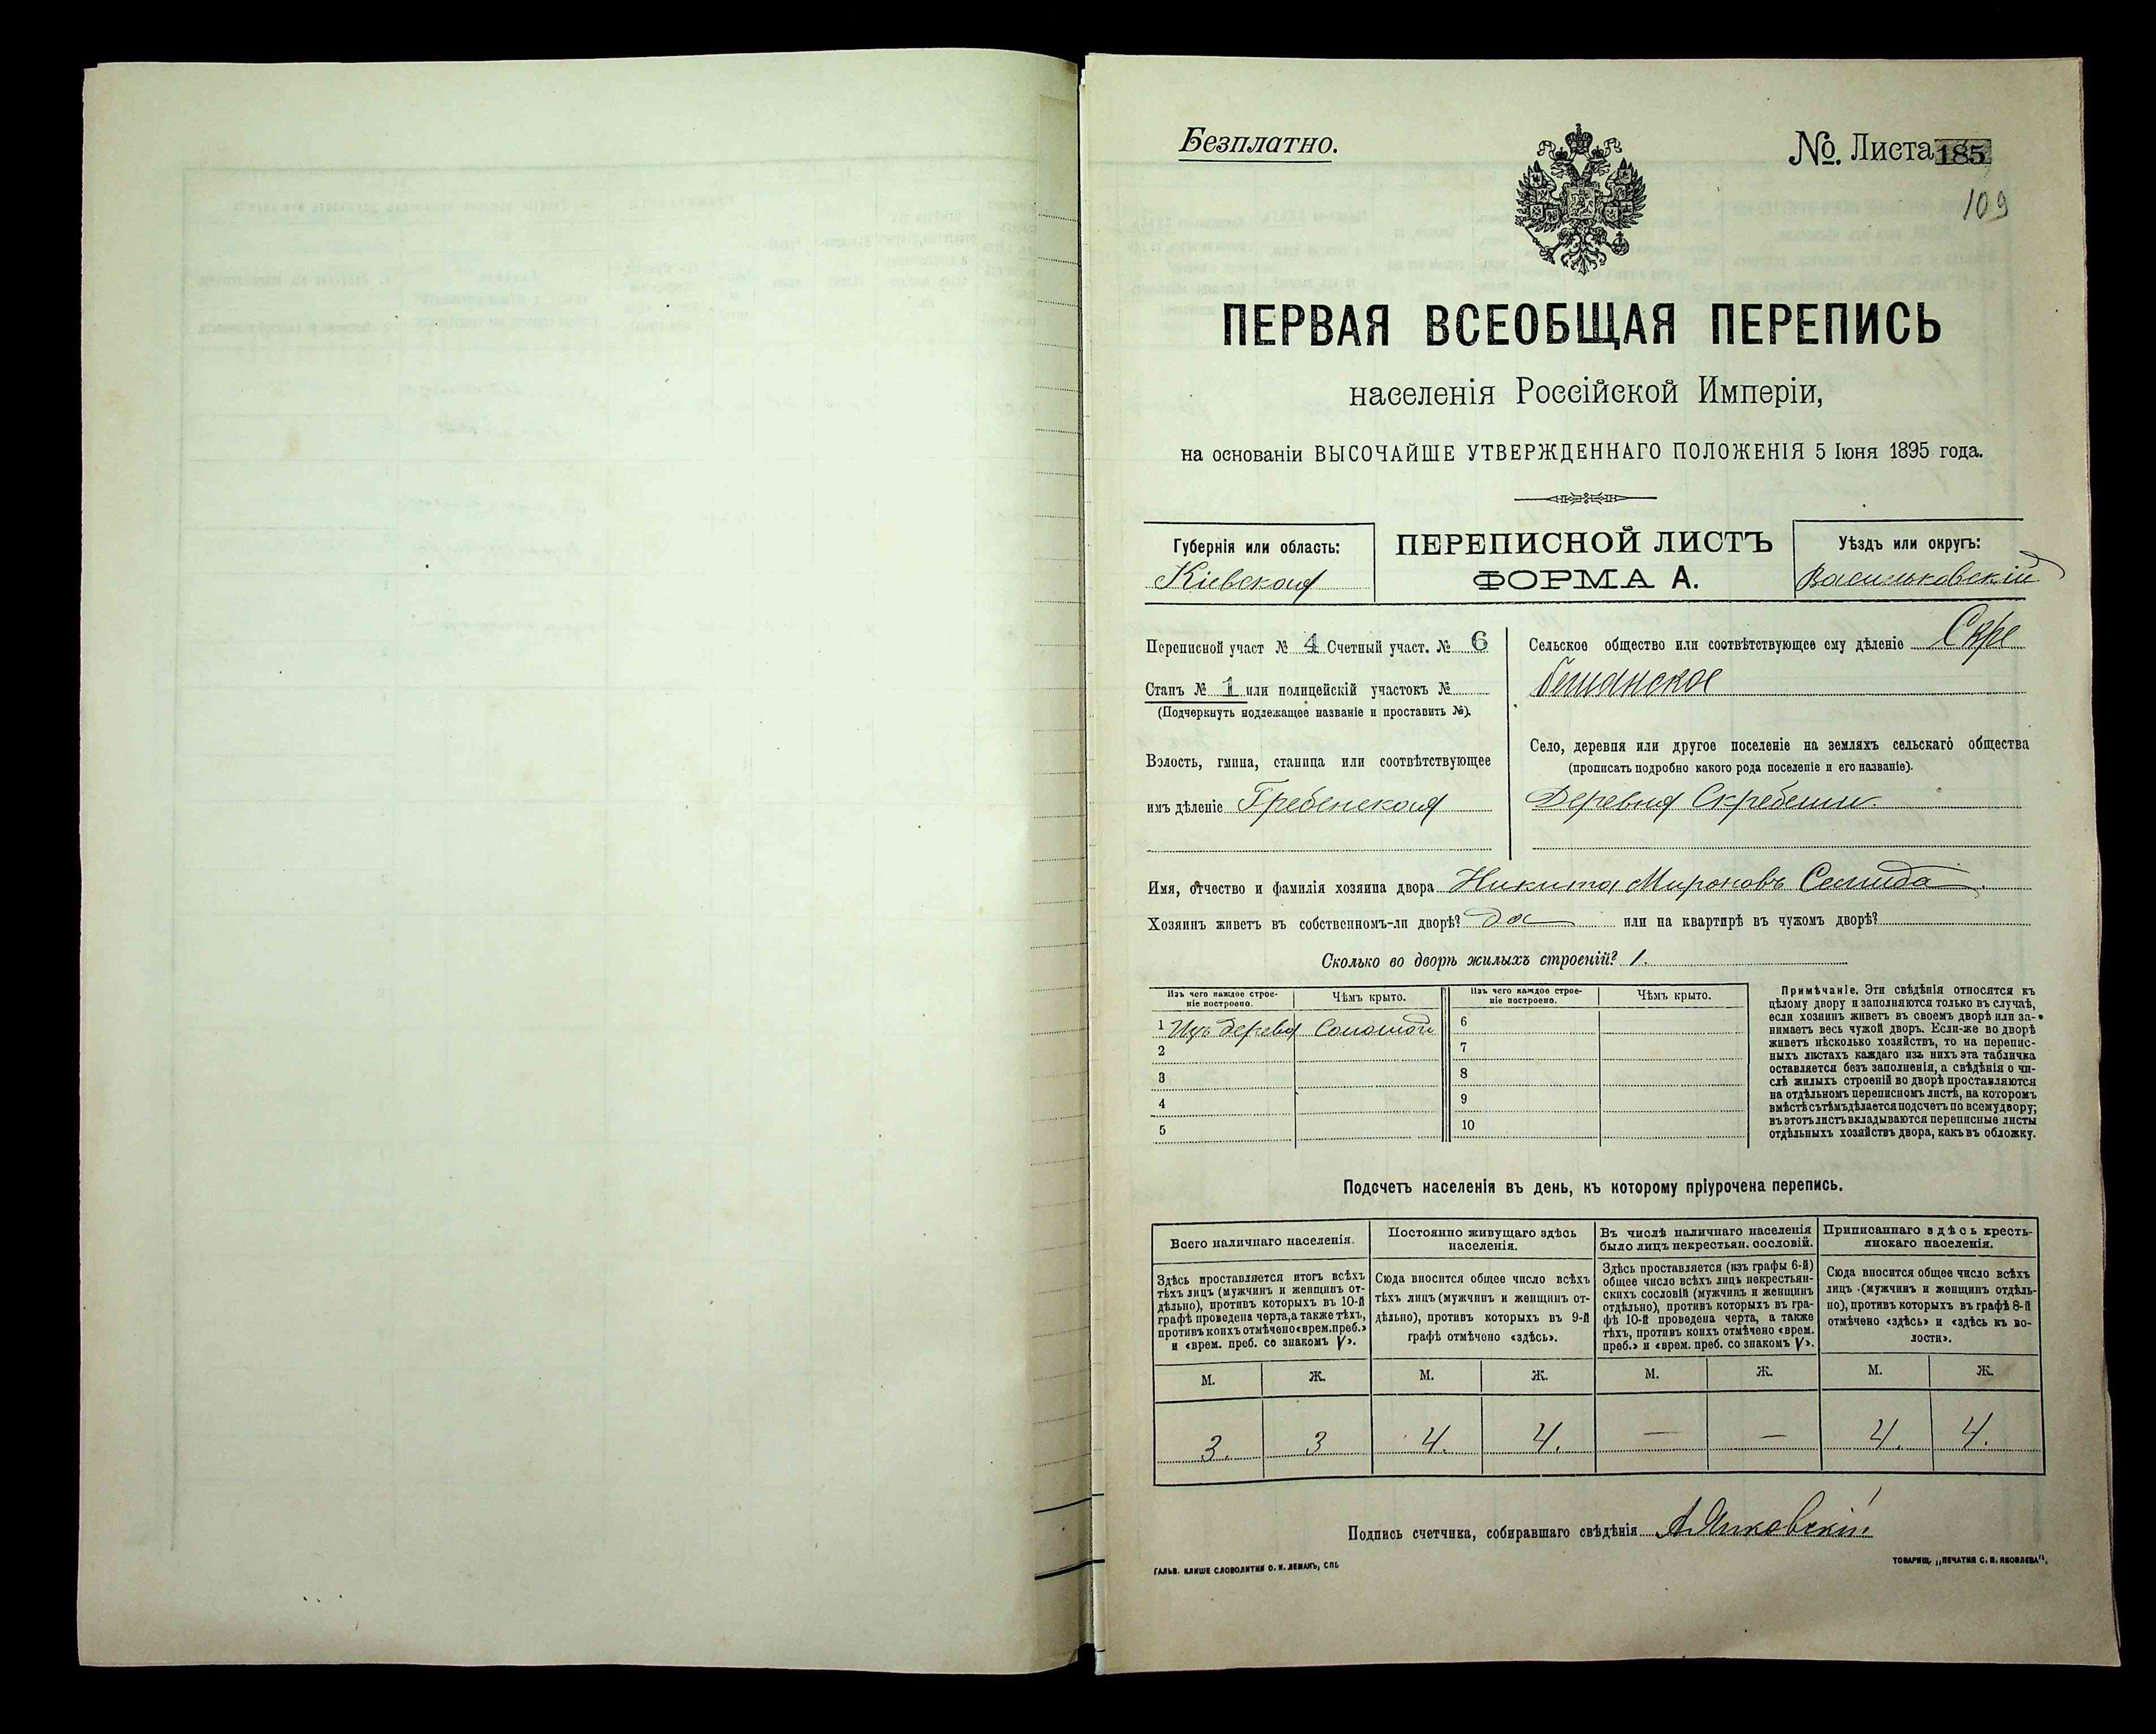 Безплатно.
№ Листа 185
109
ПЕРВАЯ ВСЕОБЩАЯ ПЕРЕПИСЬ
населенія Россійской Имперіи,
на основаніи ВЫСОЧАЙШЕ УТВЕРЖДЕННАГО ПОЛОЖЕНІЯ 5 Іюня 1895 года.
Губернія или область:
Кіевская
ПЕРЕПИСНОЙ ЛИСТЪ
ФОРМА А.
Уѣздъ или округъ:
Васильковскій
Переписной участ № 4 Счетный участ. № 6
Станъ № 1 или полицейскій участокъ №
(Подчеркнуть подлежащее названіе и проставить №).
Волость, гмина, станица или соотвѣтствующее
имъ дѣленіе Гребенская
Сельское общество или соотвѣтствующее ему дѣленіе Скре
бешанское
Село, деревня или другое поселеніе на земляхъ сельскаго общества
(прописать подробно какого рода поселеніе и его названіе).
Деревня Скребеши.
Имя, отчество и фамилія хозяина двора Никита Мироновъ
Хозяинъ живетъ въ собственномъ-ли дворѣ? да или на квартирѣ въ чужомъ дворѣ?
Сколько во дворѣ жилыхъ строеній? 1.
Изъ чего каждое строе-
ніе построено.
Чѣмъ крыто.
Изъ чего каждое строе-
ніе построено.
Чѣмъ крыто.
1 Изъ дерева Соломой
2
3
4
5
6
7
8
9
10
Примѣчаніе. Эти свѣдѣнія относятся къ
цѣлому двору и заполняются только въ случаѣ,
если хозяинъ живетъ въ своемъ дворѣ или за-
нимаетъ весь чужой дворъ. Если-же во дворѣ
живетъ нѣсколько хозяйствъ, то на перепис-
ныхъ листахъ каждаго изъ нихъ эта табличка
оставляется безъ заполненія, а свѣдѣнія о чи-
слѣ жилыхъ строеній во дворѣ проставляются
на отдѣльномъ переписномъ листѣ, на которомъ
вмѣстѣ съ тѣмъ дѣлается подсчетъ по всему двору;
въ этотъ листъ вкладываются переписные листы
отдѣльныхъ хозяйствъ двора, какъ въ обложку.
Подсчетъ населенія въ день, къ которому пріурочена перепись.
Всего наличнаго населенія.
Здѣсь проставляется итогъ всѣхъ
тѣхъ лицъ (мужчинъ и женщинъ от-
дѣльно), противъ которыхъ въ 10-й
графѣ проведена черта, а также тѣхъ,
противъ коихъ отмѣчено «врем. преб.»
и «врем. преб. со знакомъ V».
Постоянно живущаго здѣсь
населенія.
Сюда вносится общее число всѣхъ
тѣхъ лицъ (мужчинъ и женщинъ от-
дѣльно), противъ которыхъ въ 9-й
графѣ отмѣчено «здѣсь».
Въ числѣ наличнаго населенія
было лицъ некрестьян. сословій.
Здѣсь проставляется (изъ графы 6-й)
общее число всѣхъ лицъ некрестьян-
скихъ сословій (мужчинъ и женщинъ
отдѣльно), противъ которыхъ въ гра-
фѣ 10-й проведена черта, а также
тѣхъ, противъ коихъ отмѣчено «врем.
преб.» и «врем. преб. со знакомъ V».
Приписаннаго здѣсь кресть-
янскаго населенія.
Сюда вносится общее число всѣхъ
лицъ (мужчинъ и женщинъ отдѣль-
но), противъ которыхъ въ графѣ 8-й
отмѣчено «здѣсь» и «здѣсь къ во-
лости».
М. Ж. М. Ж. М. Ж. М. Ж.
3. 3 4. 4. — — 4. 4.
Подпись счетчика, собиравшаго свѣдѣнія
ГАЛЬВ. КЛИШЕ СЛОВОЛИТНИ О. И. ЛЕМАНЪ, СПБ
ТОВАРИЩ. „ПЕЧАТНЯ С. П. ЯКОВЛЕВА".